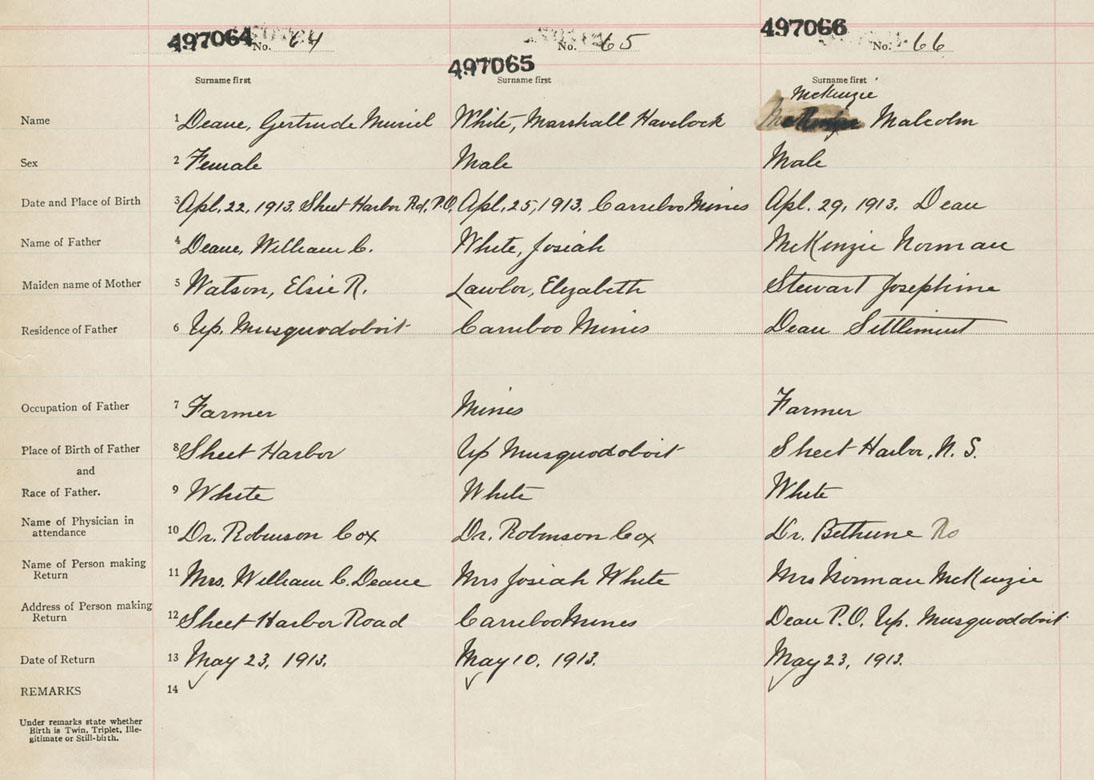 497064 No. 64
497065 No. 65
497066 No. 66
Surname first Surname first Surname first
McKenzie
Name 1 Deane, Gertrude Muriel White, Marshall Havelock Malcolm
Sex 2 Female Male Male
Date and Place of Birth 3 Apl. 22, 1913. Sheet Harbor Rd, P.O. Apl. 25, 1913. Carreboo Mines Apl. 29, 1913. Dean
Name of Father 4 Deane, William C. White, Josiah McKenzie Norman
Maiden name of Mother 5 Watson, Elsie R. Lawlor, Elizabeth Stewart Josephine
Residence of Father 6 Up. Musquodoboit Carreboo Mines Dean Settlement
Occupation of Father 7 Farmer Mines Farmer
Place of Birth of Father 8 Sheet Harbor Up Musquodoboit Sheet Harbor, N. S.
and
Race of Father. 9 White White White
Name of Physician in attendance 10 Dr. Robinson Cox Dr. Robinson Cox Dr. Bethune Ro
Name of Person making Return 11 Mrs. William C. Deane Mrs Josiah White Mrs Norman McKenzie
Address of Person making Return 12 Sheet Harbor Road Carreboo Mines Dean P.O. Up. Musquodoboit
Date of Return 13 May 23, 1913. May 10, 1913. May 23, 1913.
REMARKS 14
Under remarks state whether
Birth is Twin, Triplet, Ille-
gitimate or Still-birth.